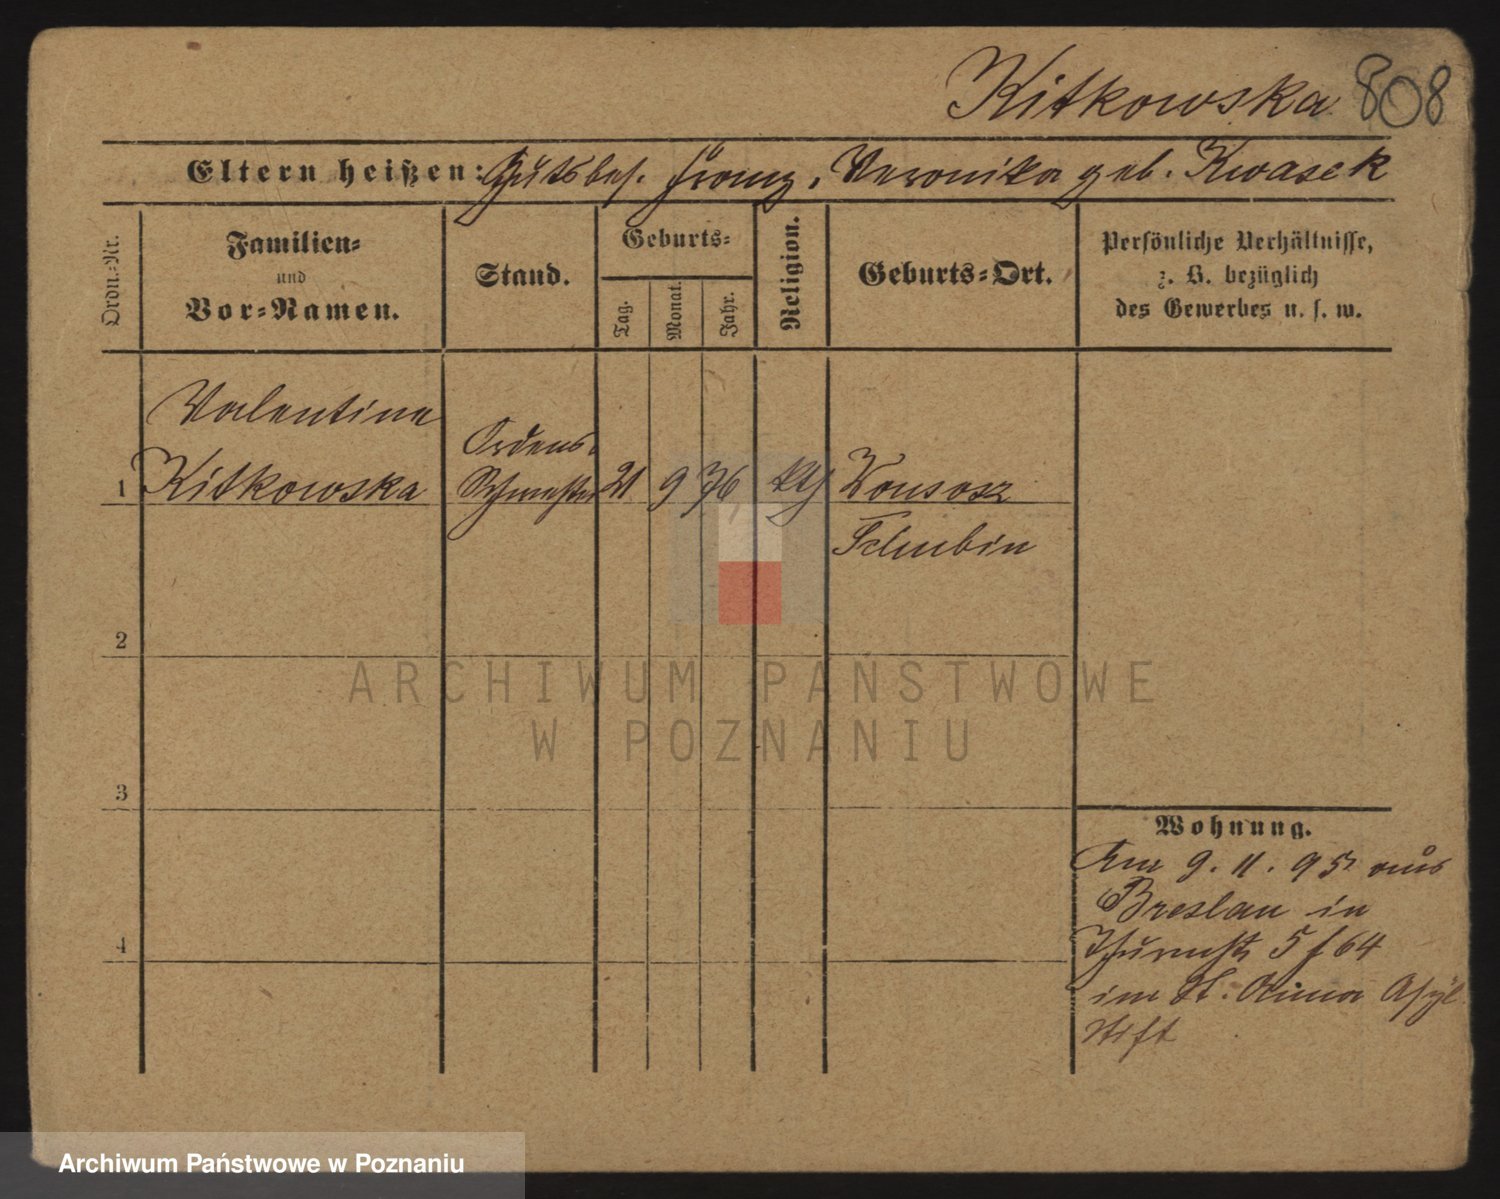 Kitkowska 808
Eltern heißen: Gutsbes. Franz, Veronika geb. Kwasek
Ordn.=Nr.
Familien=
und
Vor=Namen.
Stand.
Geburts=
Tag.
Monat.
Jahr.
Religion.
Geburts=Ort.
Persönliche Verhältnisse,
z. B. bezüglich
des Gewerbes u. s. w.
Valentine
1 Kitkowska
Ordens-
Schwester
21 9 76 kth
Schubin
2
3
4
Wohnung.
Am 9. 11. 95 aus
Breslau in
5 f 64
im St. Anna Asyl
Stift
ARCHIWUM PAŃSTWOWE
W POZNANIU
Archiwum Państwowe w Poznaniu